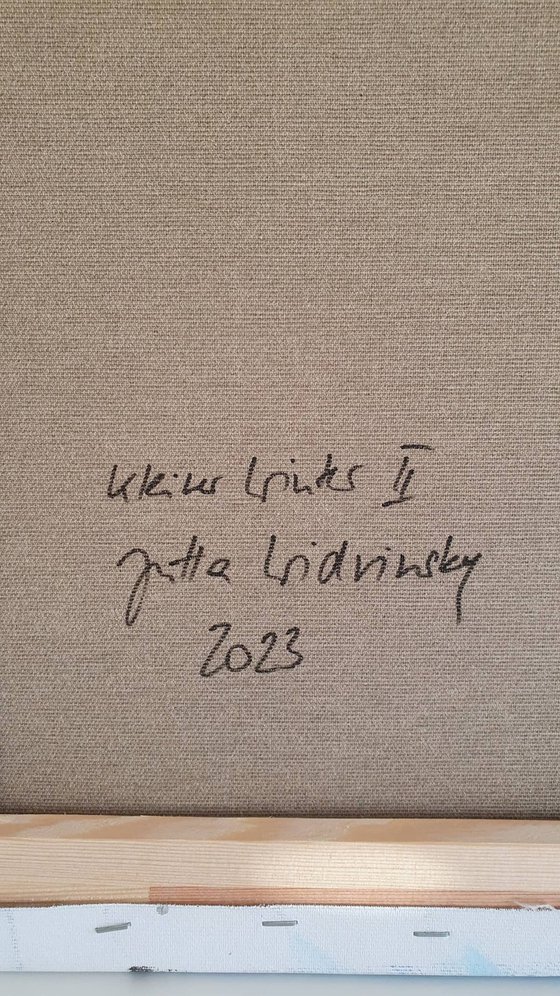 kleiner Winter II
Jutta Widrinsky
2023